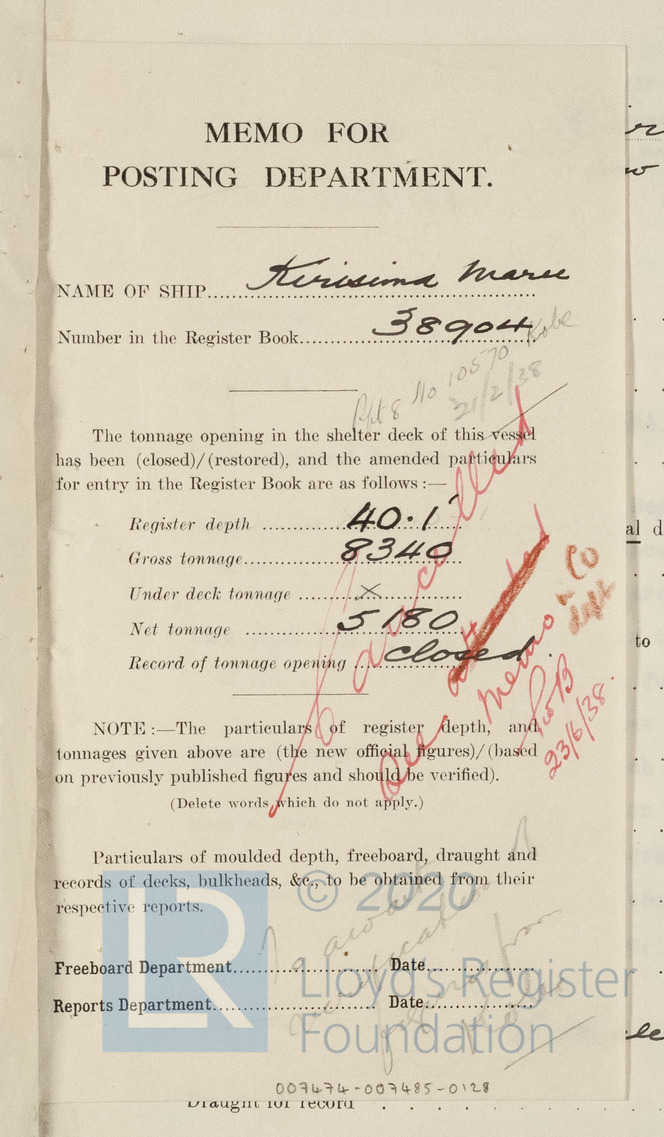 MEMO FOR
POSTING DEPARTMENT.
NAME OF SHIP.......... Kirisima Maru
Number in the Register Book.......... 38904
Rpt 8 No 10570 Kobe
21/2/38
The tonnage opening in the shelter deck of this vessel
has been (closed)/(restored), and the amended particulars
for entry in the Register Book are as follows :—
Register depth .......... 40.1'
Gross tonnage.......... 8340
Under deck tonnage .......... ×
Net tonnage .......... 5180
Record of tonnage opening .......... closed
Cancelled
See attached
Memo
23/6/38.
NOTE :—The particulars of register depth, and
tonnages given above are (the new official figures)/(based
on previously published figures and should be verified).
(Delete words which do not apply.)
Particulars of moulded depth, freeboard, draught and
records of decks, bulkheads, &c., to be obtained from their
respective reports.
Freeboard Department.......... Date..........
Reports Department.......... Date..........
© 2020
LR
Lloyd's Register
Foundation
007474-007485-0128
Draught for record
al d
to